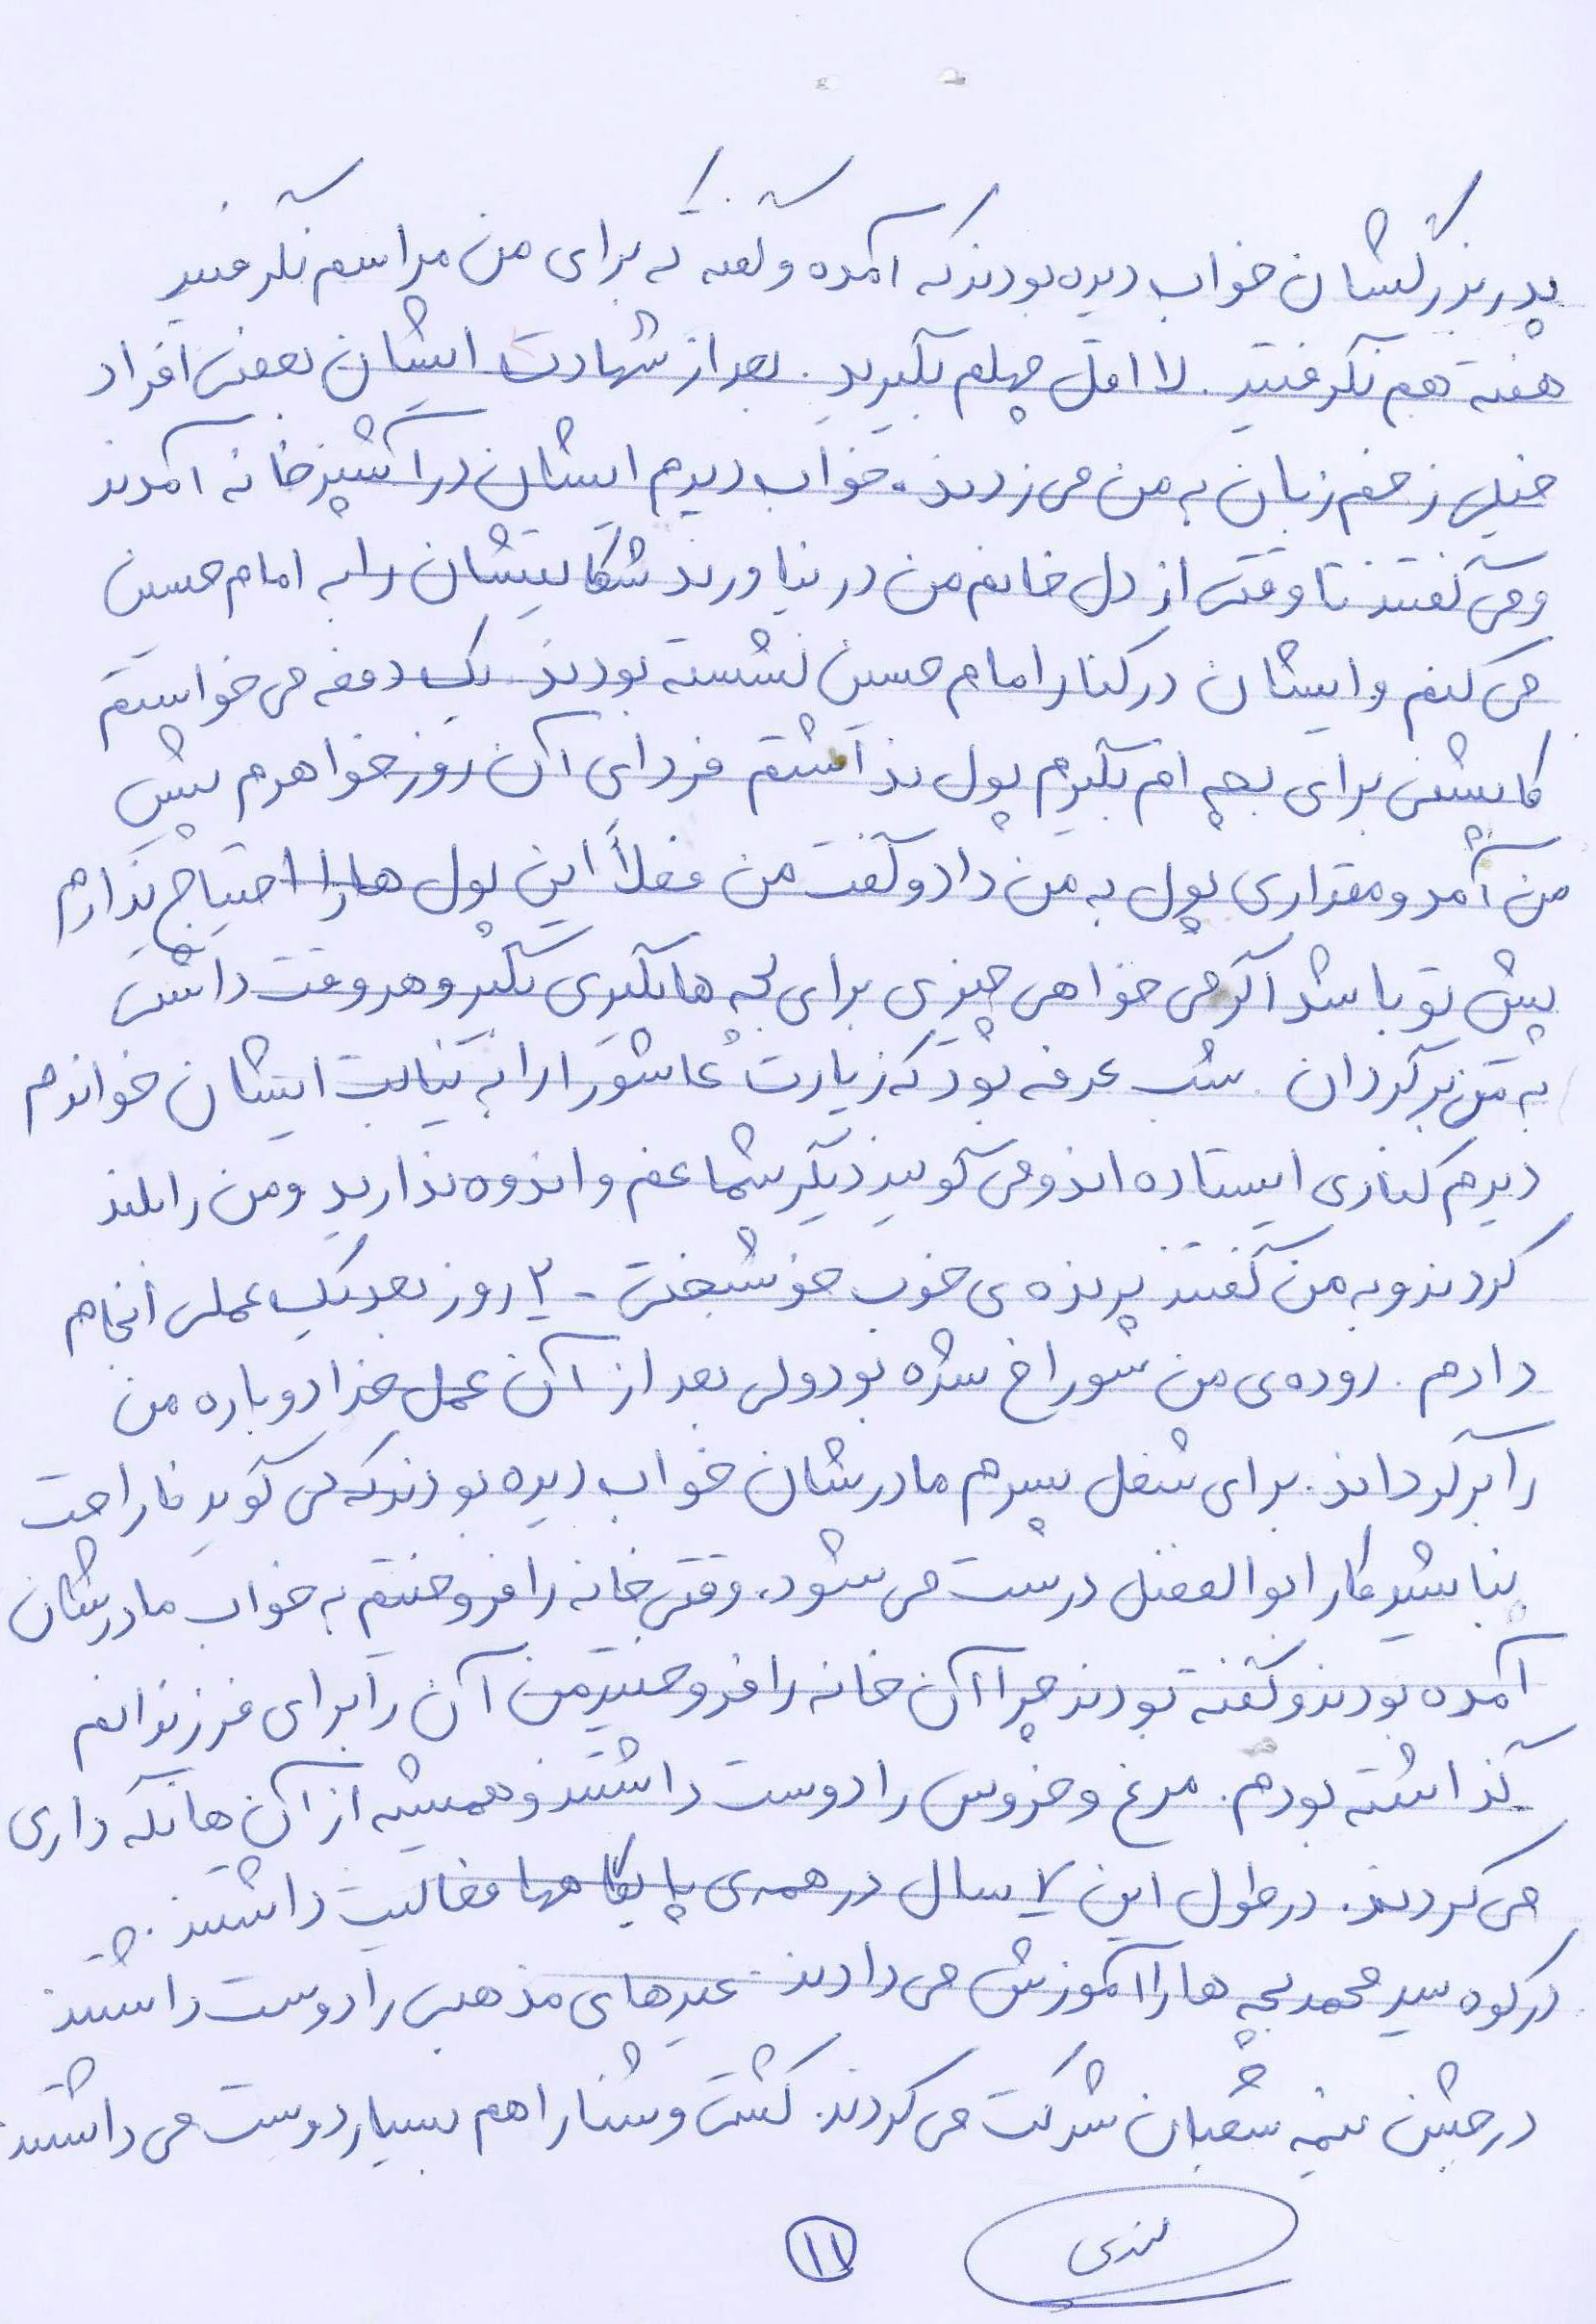 پدربزرگشان خواب دیده بودند که آمده و گفته که برای من مراسم نگرفتید
هفته هم نگرفتید. لااقل چهلم بگیرید. بعد از شهادت ایشان بعضی افراد
خیلی زخم زبان به من می زدند. خواب دیدم ایشان در آشپزخانه آمدند
و می گفتند تا وقتی از دل خانم من در نیاورند شکایتشان را به امام حسین
می کنم و ایشان در کنار امام حسین نشسته بودند. یک دفعه می خواستم
کاپشنی برای بچه ام بگیرم پول نداشتم فردای آن روز خواهرم پیش
من آمد و مقداری پول به من داد و گفت من فعلاً این پول ها را احتیاج ندارم
پیش تو باشد اگر می خواهی چیزی برای بچه ها بگیری بگیر و هر وقت داشتی
به من برگردان. شب عرفه بود که زیارت عاشورا را به نیابت ایشان خواندم
دیدم کناری ایستاده اند و می گویند دیگر شما غم و اندوه ندارید و من را بلند
کردند و به من گفتند پرنده ی خوب خوشبختی - ۲ روز بعد یک عملی انجام
دادم. روده ی من سوراخ شده بود ولی بعد از آن عمل خدا دوباره من
را برگرداند. برای شغل پسرم مادرشان خواب دیده بودند که می گوید ناراحت
نباشید کار ابوالفضل درست می شود. وقتی خانه را فروختیم به خواب مادرشان
آمده بودند و گفته بودند چرا آن خانه را فروختید من آن را برای فرزندانم
گذاشته بودم. مرغ و خروس را دوست داشتند و همیشه از آن ها نگه داری
می کردند. در طول این ۷ سال در همه ی پایگاهها فعالیت داشتند.
در کوه سید محمد بچه ها را آموزش می دادند. عیدهای مذهبی را دوست داشتند
در جشن نیمه شعبان شرکت می کردند. کشتی و شنا را هم بسیار دوست می داشتند.
۱۱